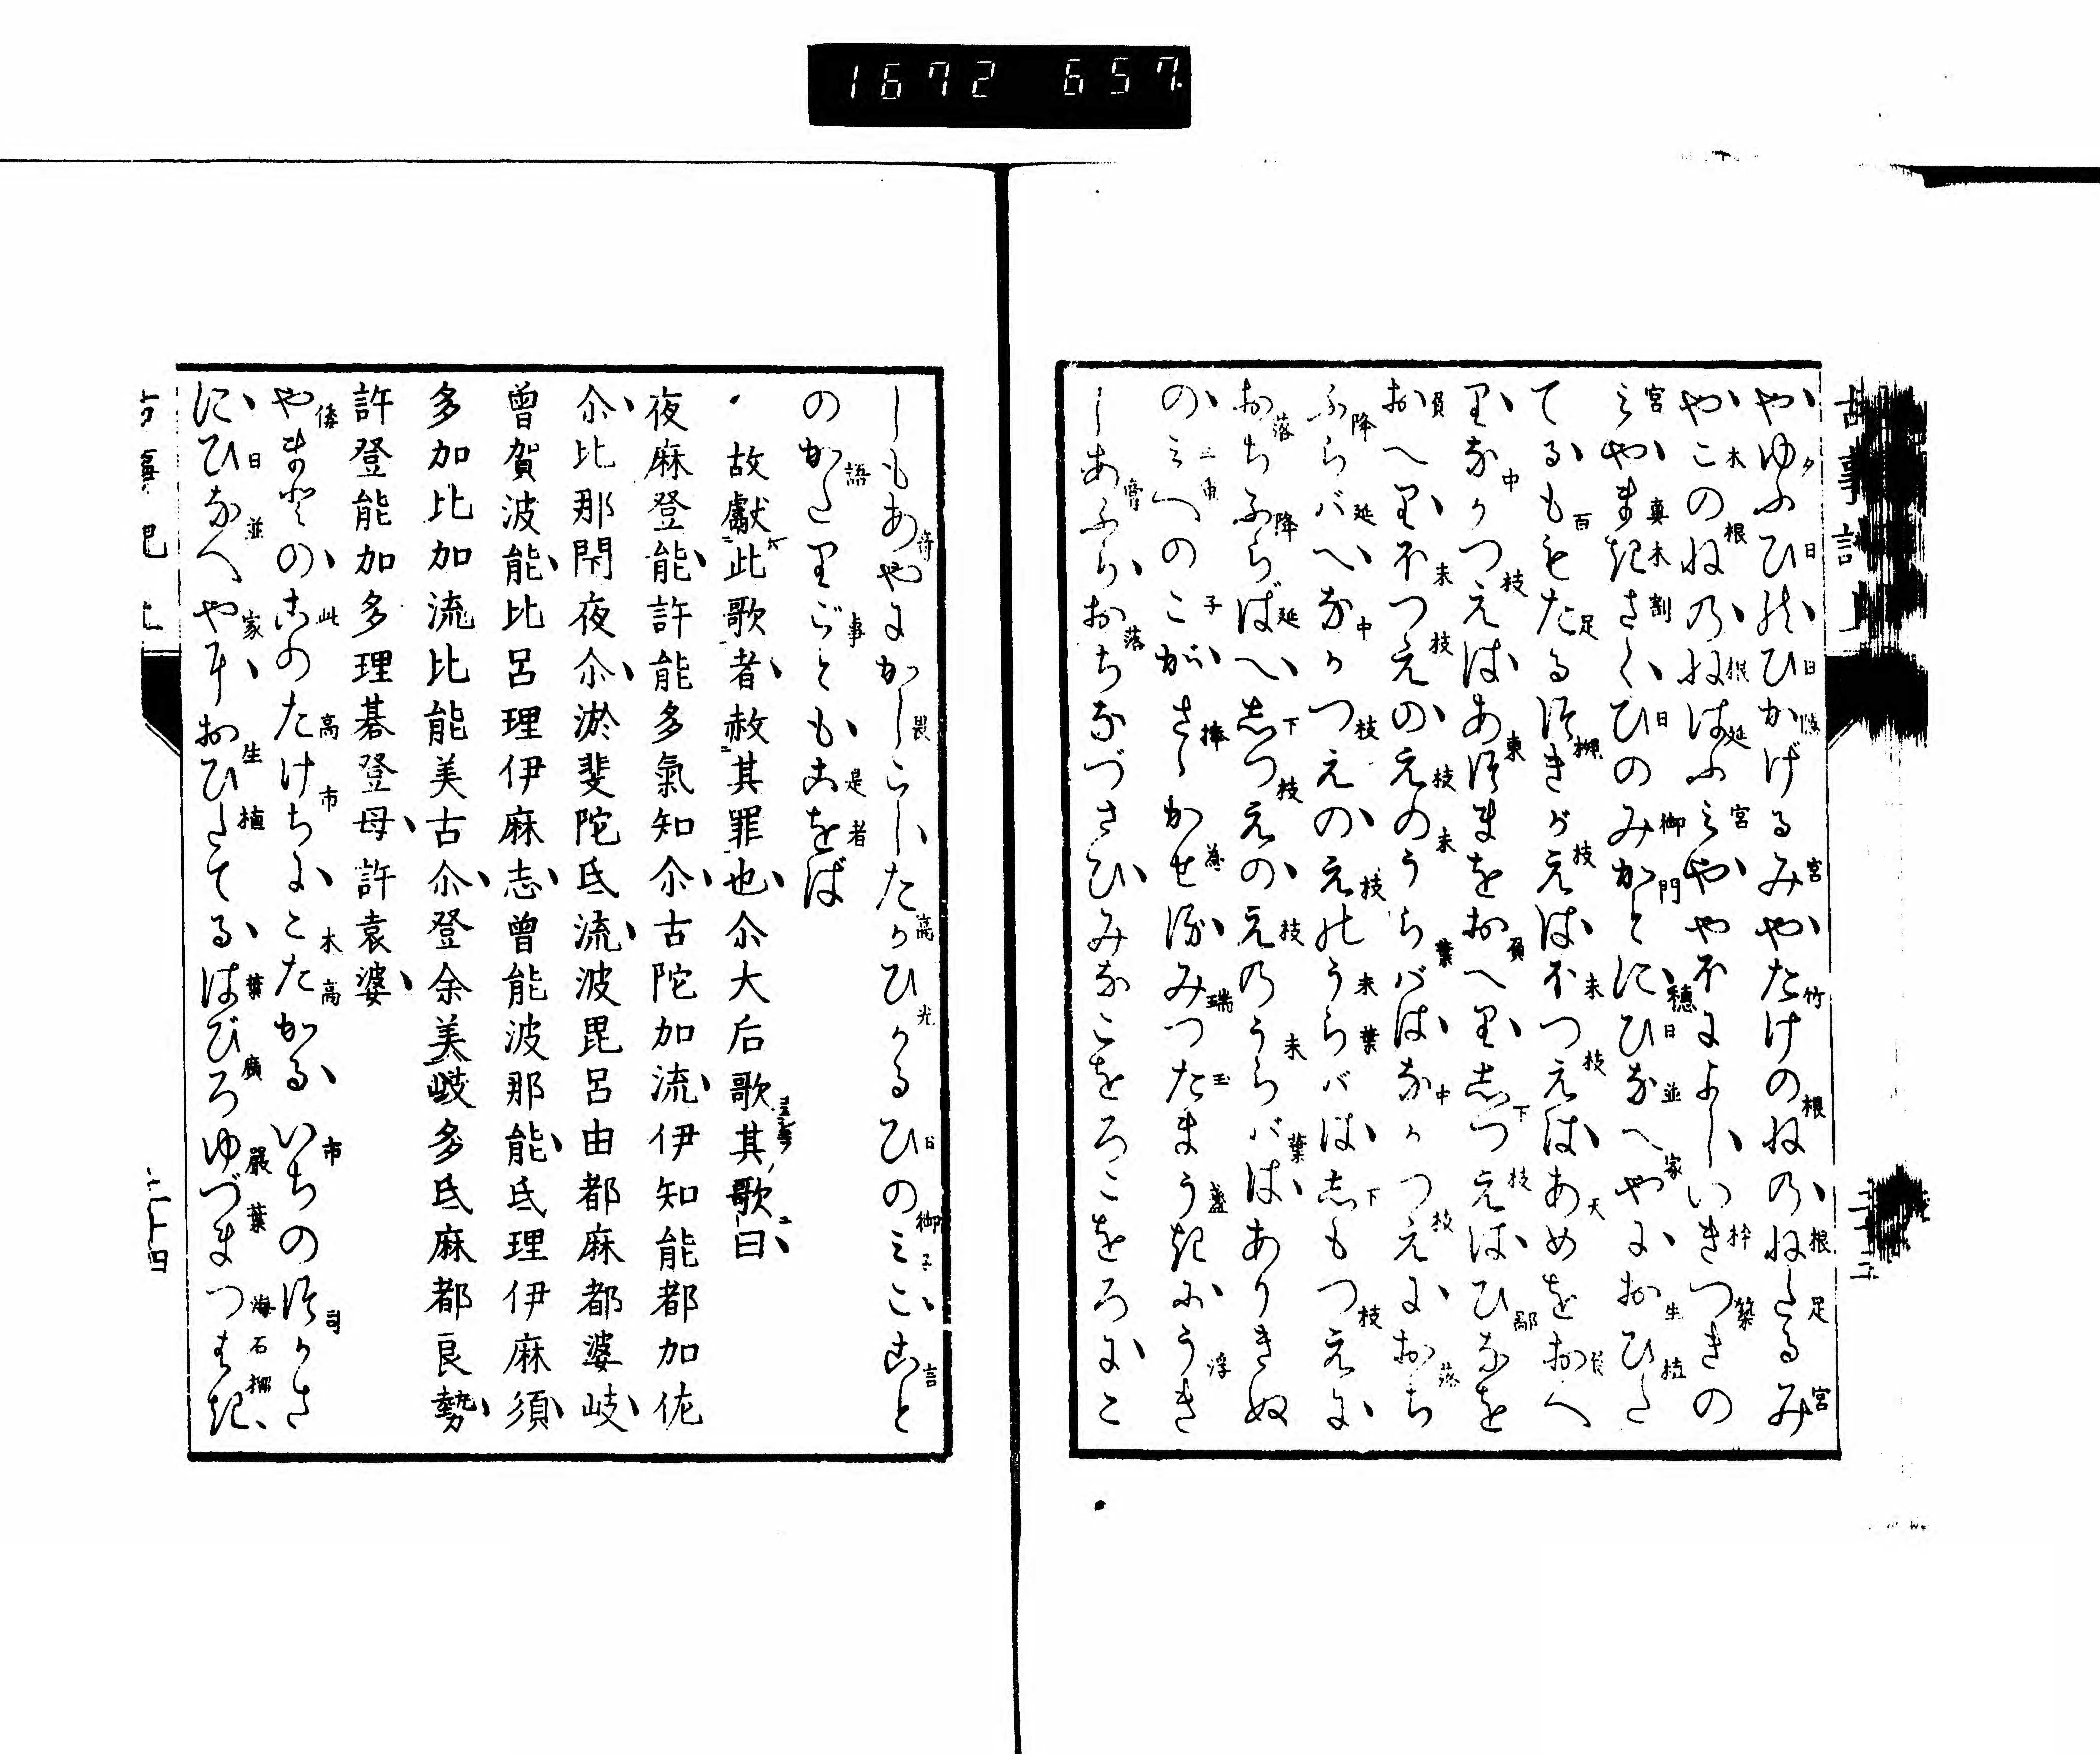 古事記 上
やゆふひのひかげるみやたけのねのねたるみ
やこのねのねはふみややほによしいきつきの
みやまきさくひのみかとにひなへやにおひた
てるもゝたるつきがえはほつえはあめをおへ
りなかつえはあつまをおへりしつえはひなを
おへりほつえのえのうらバはなかつえにおち
ふらバへなかつえのえのうらバはしもつえに
おちふらばへしつえのえのうらバはありきぬ
のみへのこがさゝかせるみつたまうきにうき
しあふらおちなづさひみなこをろこをろにこ
しもあやにかしこしたかひかるひのみここと
のかたりごともこをば
故獻此歌者赦其罪也尒大后歌其歌曰
夜麻登能許能多氣知尒古陀加流伊知能都加佐
尒比那閇夜尒淤斐陀氐流波毘呂由都麻都婆岐
曾賀波能比呂理伊麻志曾能波那能氐理伊麻須
多加比加流比能美古尒登余美岐多氐麻都良勢
許登能加多理碁登母許袁婆
やまとのこのたけちにこたかるいちのつかさ
にひなへやにおひたてるはびろゆづまつばき
二十四
1672 657